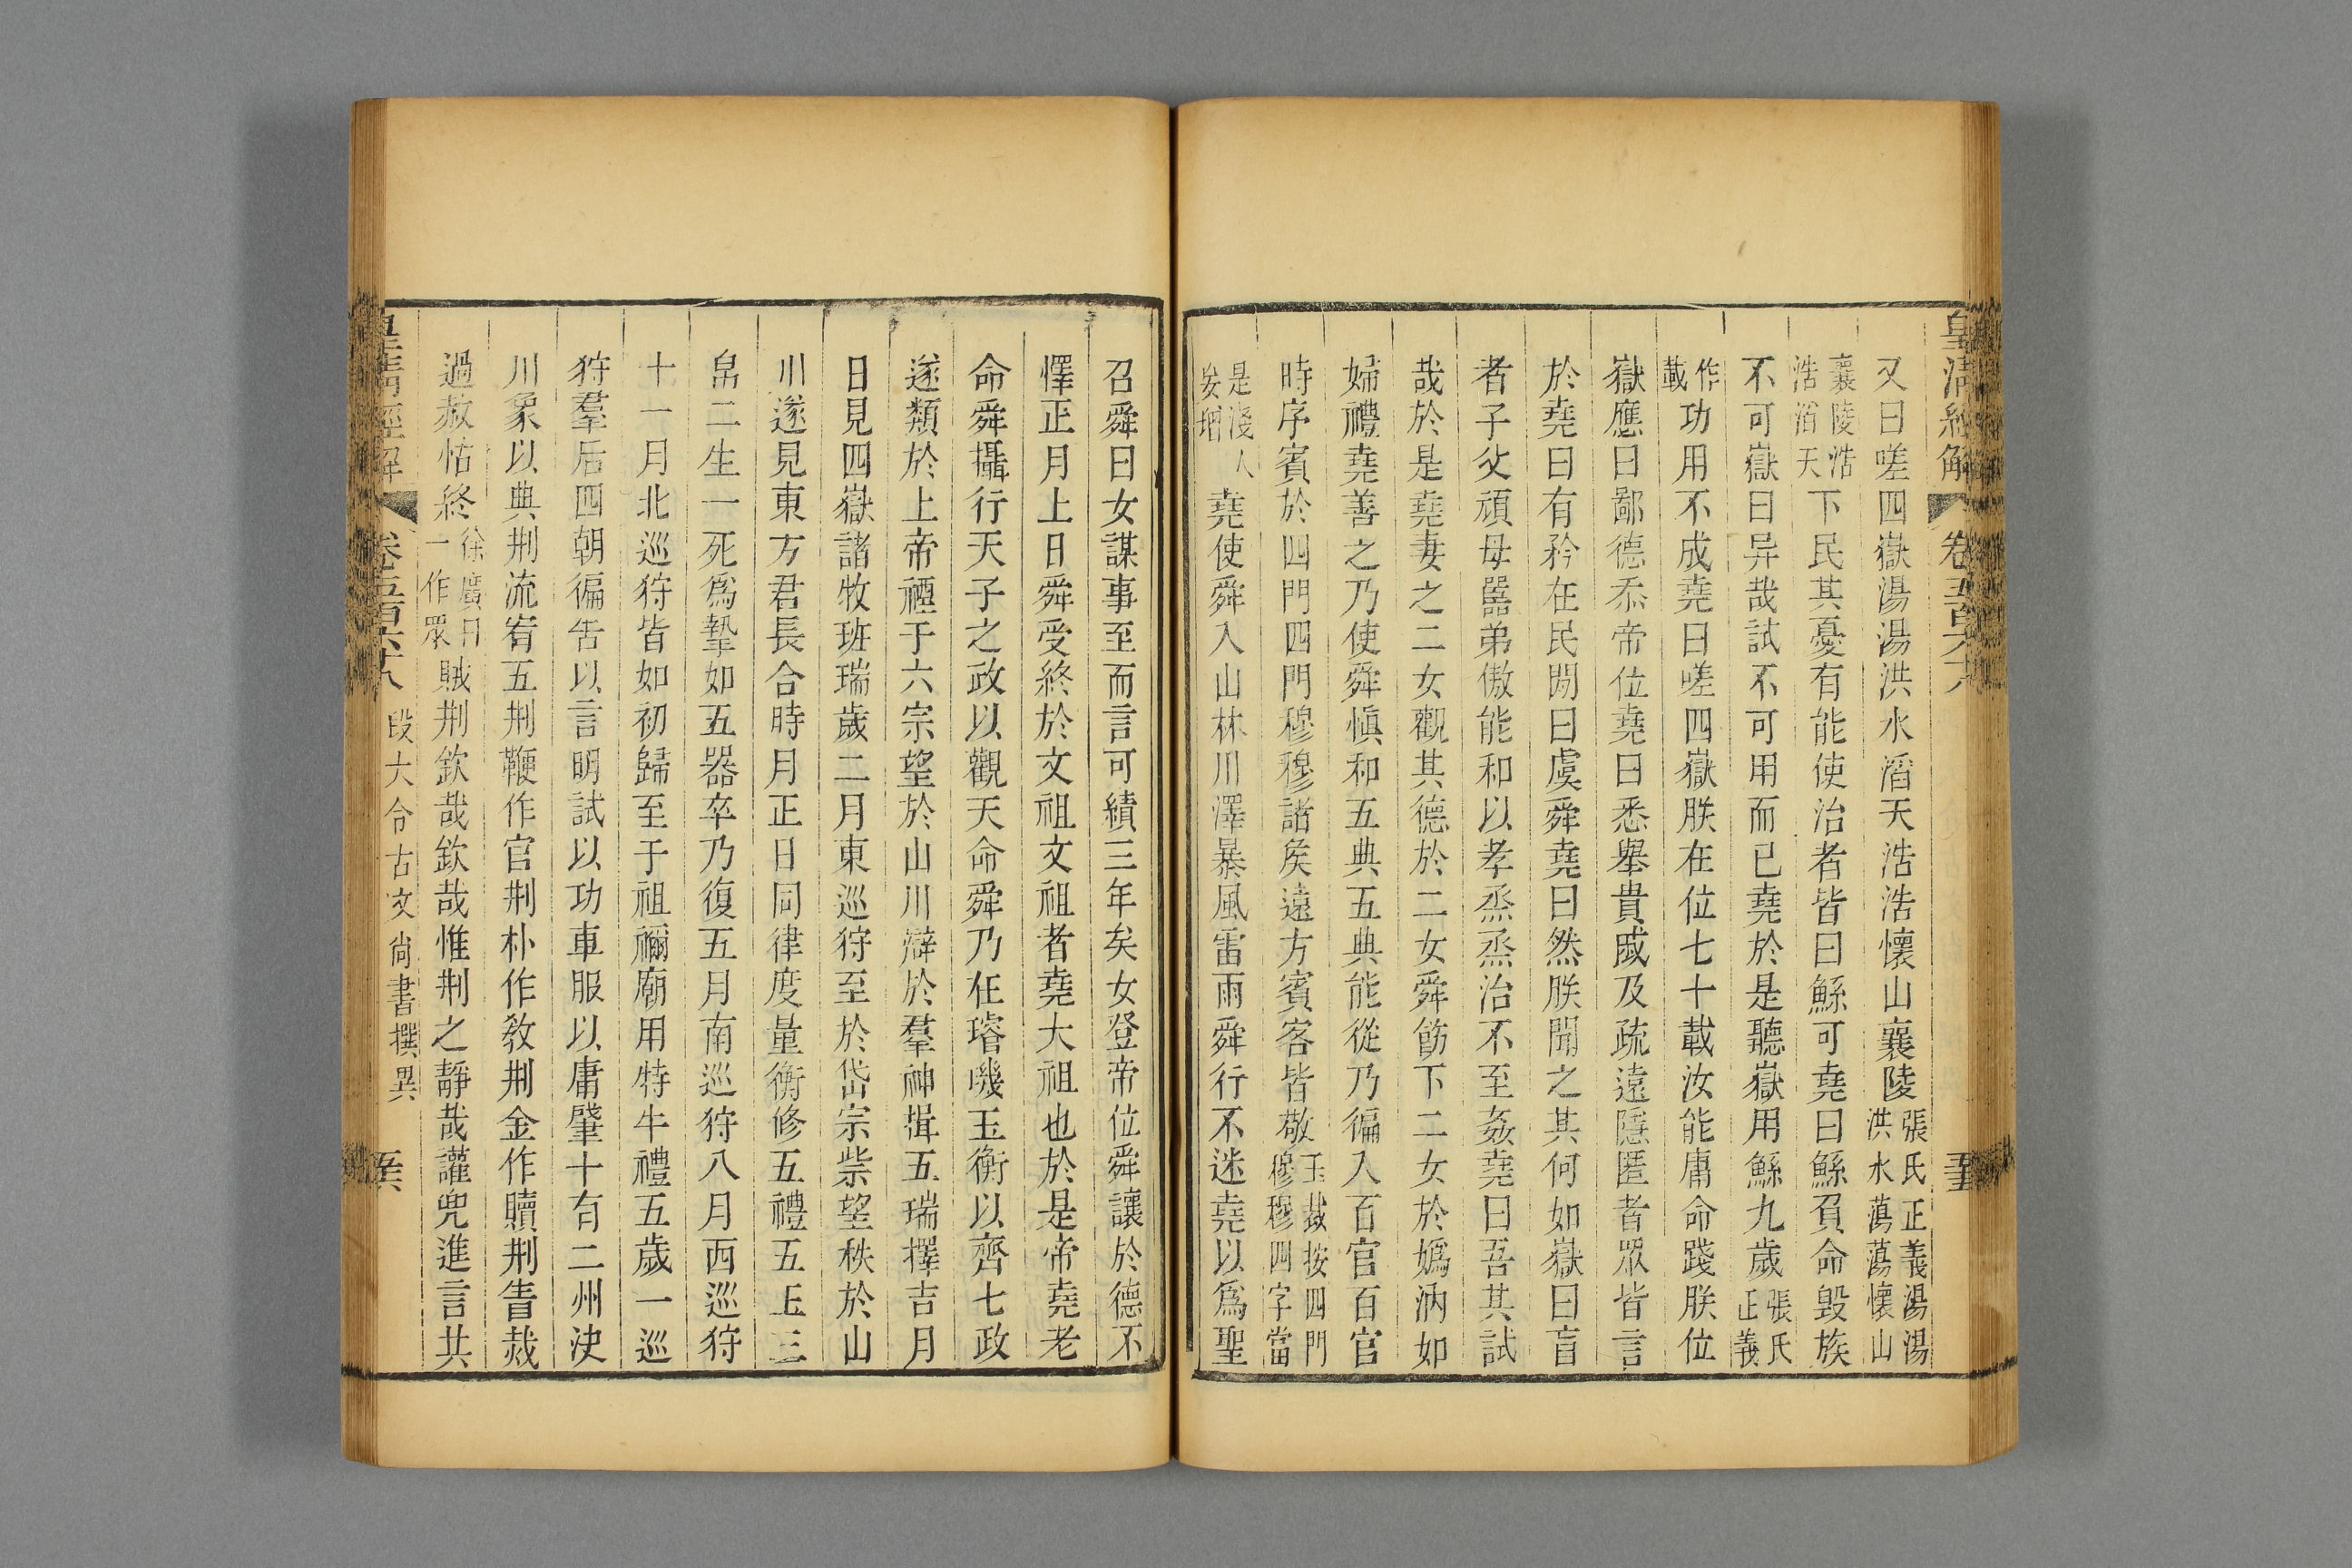 皇清經解 卷五百六十八 五
又曰嗟四嶽湯湯洪水滔天浩浩懷山襄陵張氏正義湯湯洪水蕩蕩懷山
襄陵浩浩滔天下民其憂有能使治者皆曰鯀可堯曰鯀負命毀族
不可嶽曰异哉試不可用而已堯於是聽嶽用鯀九歲張氏正義
作載功用不成堯曰嗟四嶽朕在位七十載汝能庸命踐朕位
嶽應曰鄙德忝帝位堯曰悉舉貴戚及疏遠隱匿者眾皆言
於堯曰有矜在民閒曰虞舜堯曰然朕聞之其何如嶽曰盲
者子父頑母嚚弟傲能和以孝烝烝治不至姦堯曰吾其試
哉於是堯妻之二女觀其德於二女舜飭下二女於嬀汭如
婦禮堯善之乃使舜慎和五典五典能從乃徧入百官百官
時序賓於四門四門穆穆諸矦遠方賓客皆敬玉裁按四門穆穆四字當
是淺人妄增堯使舜入山林川澤暴風雷雨舜行不迷堯以爲聖
召舜曰女謀事至而言可績三年矣女登帝位舜讓於德不
懌正月上日舜受終於文祖文祖者堯大祖也於是帝堯老
命舜攝行天子之政以觀天命舜乃在璿璣玉衡以齊七政
遂類於上帝禋于六宗望於山川辯於羣神揖五瑞擇吉月
日見四嶽諸牧班瑞歲二月東巡狩至於岱宗祡望秩於山
川遂見東方君長合時月正日同律度量衡修五禮五玉三
帛二生一死爲摯如五器卒乃復五月南巡狩八月西巡狩
十一月北巡狩皆如初歸至于祖禰廟用特牛禮五歲一巡
狩羣后四朝徧告以言明試以功車服以庸肇十有二州決
川象以典刑流宥五刑鞭作官刑朴作敎刑金作贖刑眚烖
過赦怙終徐廣曰一作眾賊刑欽哉欽哉惟刑之靜哉讙兜進言共
皇清經解 卷五百六十八 段大令古文尚書撰異